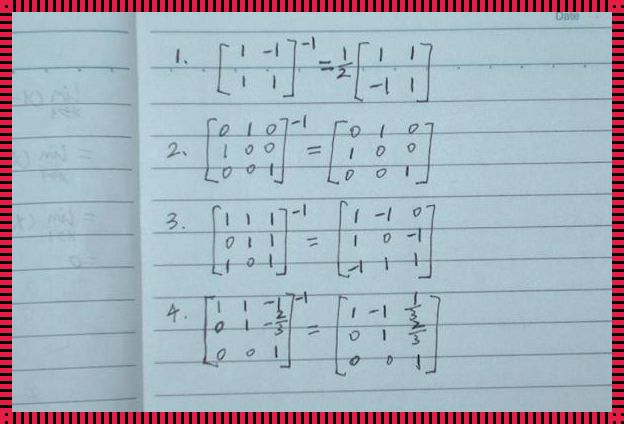 Date
1. [1 -1; 1 1]^-1 = 1/2 [1 1; -1 1]
2. [0 1 0; 1 0 0; 0 0 1]^-1 = [0 1 0; 1 0 0; 0 0 1]
3. [1 1 1; 0 1 1; 1 0 1]^-1 = [1 -1 0; 1 0 -1; -1 1 1]
4. [1 1 -1; 0 1 -2/3; 0 0 1]^-1 = [1 -1 1/3; 0 1 2/3; 0 0 1]